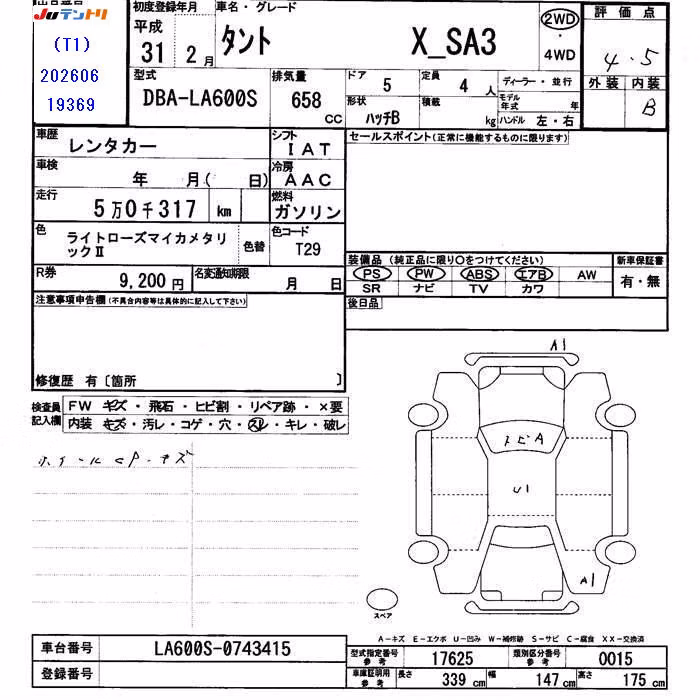 JUテントリ
(T1)
202606
19369
初度登録年月
平成
31 2月
車名・グレード
タント X_SA3
2WD
・
4WD
評価点
4.5
外装 内装
B
型式
DBA-LA600S
排気量
658 CC
ドア 5
定員 4人
形状 ハッチB
積載 kg
ディーラー・並行
モデル年式 年
ハンドル 左・右
車歴 レンタカー
シフト IAT
車検 年 月( 日)
冷房 AAC
走行 5万0千317 km
燃料 ガソリン
色 ライトローズマイカメタリックⅡ
色替
色コード T29
R券 9,200円
名変通知期限 月 日
セールスポイント(正常に機能するものに限ります)
装備品(純正品に限り○をつけてください)
新車保証書
PS PW ABS エアB AW
SR ナビ TV カワ
有・無
後日品
注意事項申告欄(不具合内容等は具体的に記入して下さい)
修復歴 有〔箇所 〕
検査員記入欄
FW キズ・飛石・ヒビ割・リペア跡・×要
内装 キズ・汚レ・コゲ・穴・スレ・キレ・破レ
ホイールCP.キズ
A1
トビA
U1
A1
スペア
A-キズ E-エクボ U-凹み W-補修跡 S-サビ C-腐食 XX-交換済
車台番号 LA600S-0743415
登録番号
型式指定番号 参考 17625
類別区分番号 参考 0015
車庫証明用 参考
長さ 339 cm
幅 147 cm
高さ 175 cm